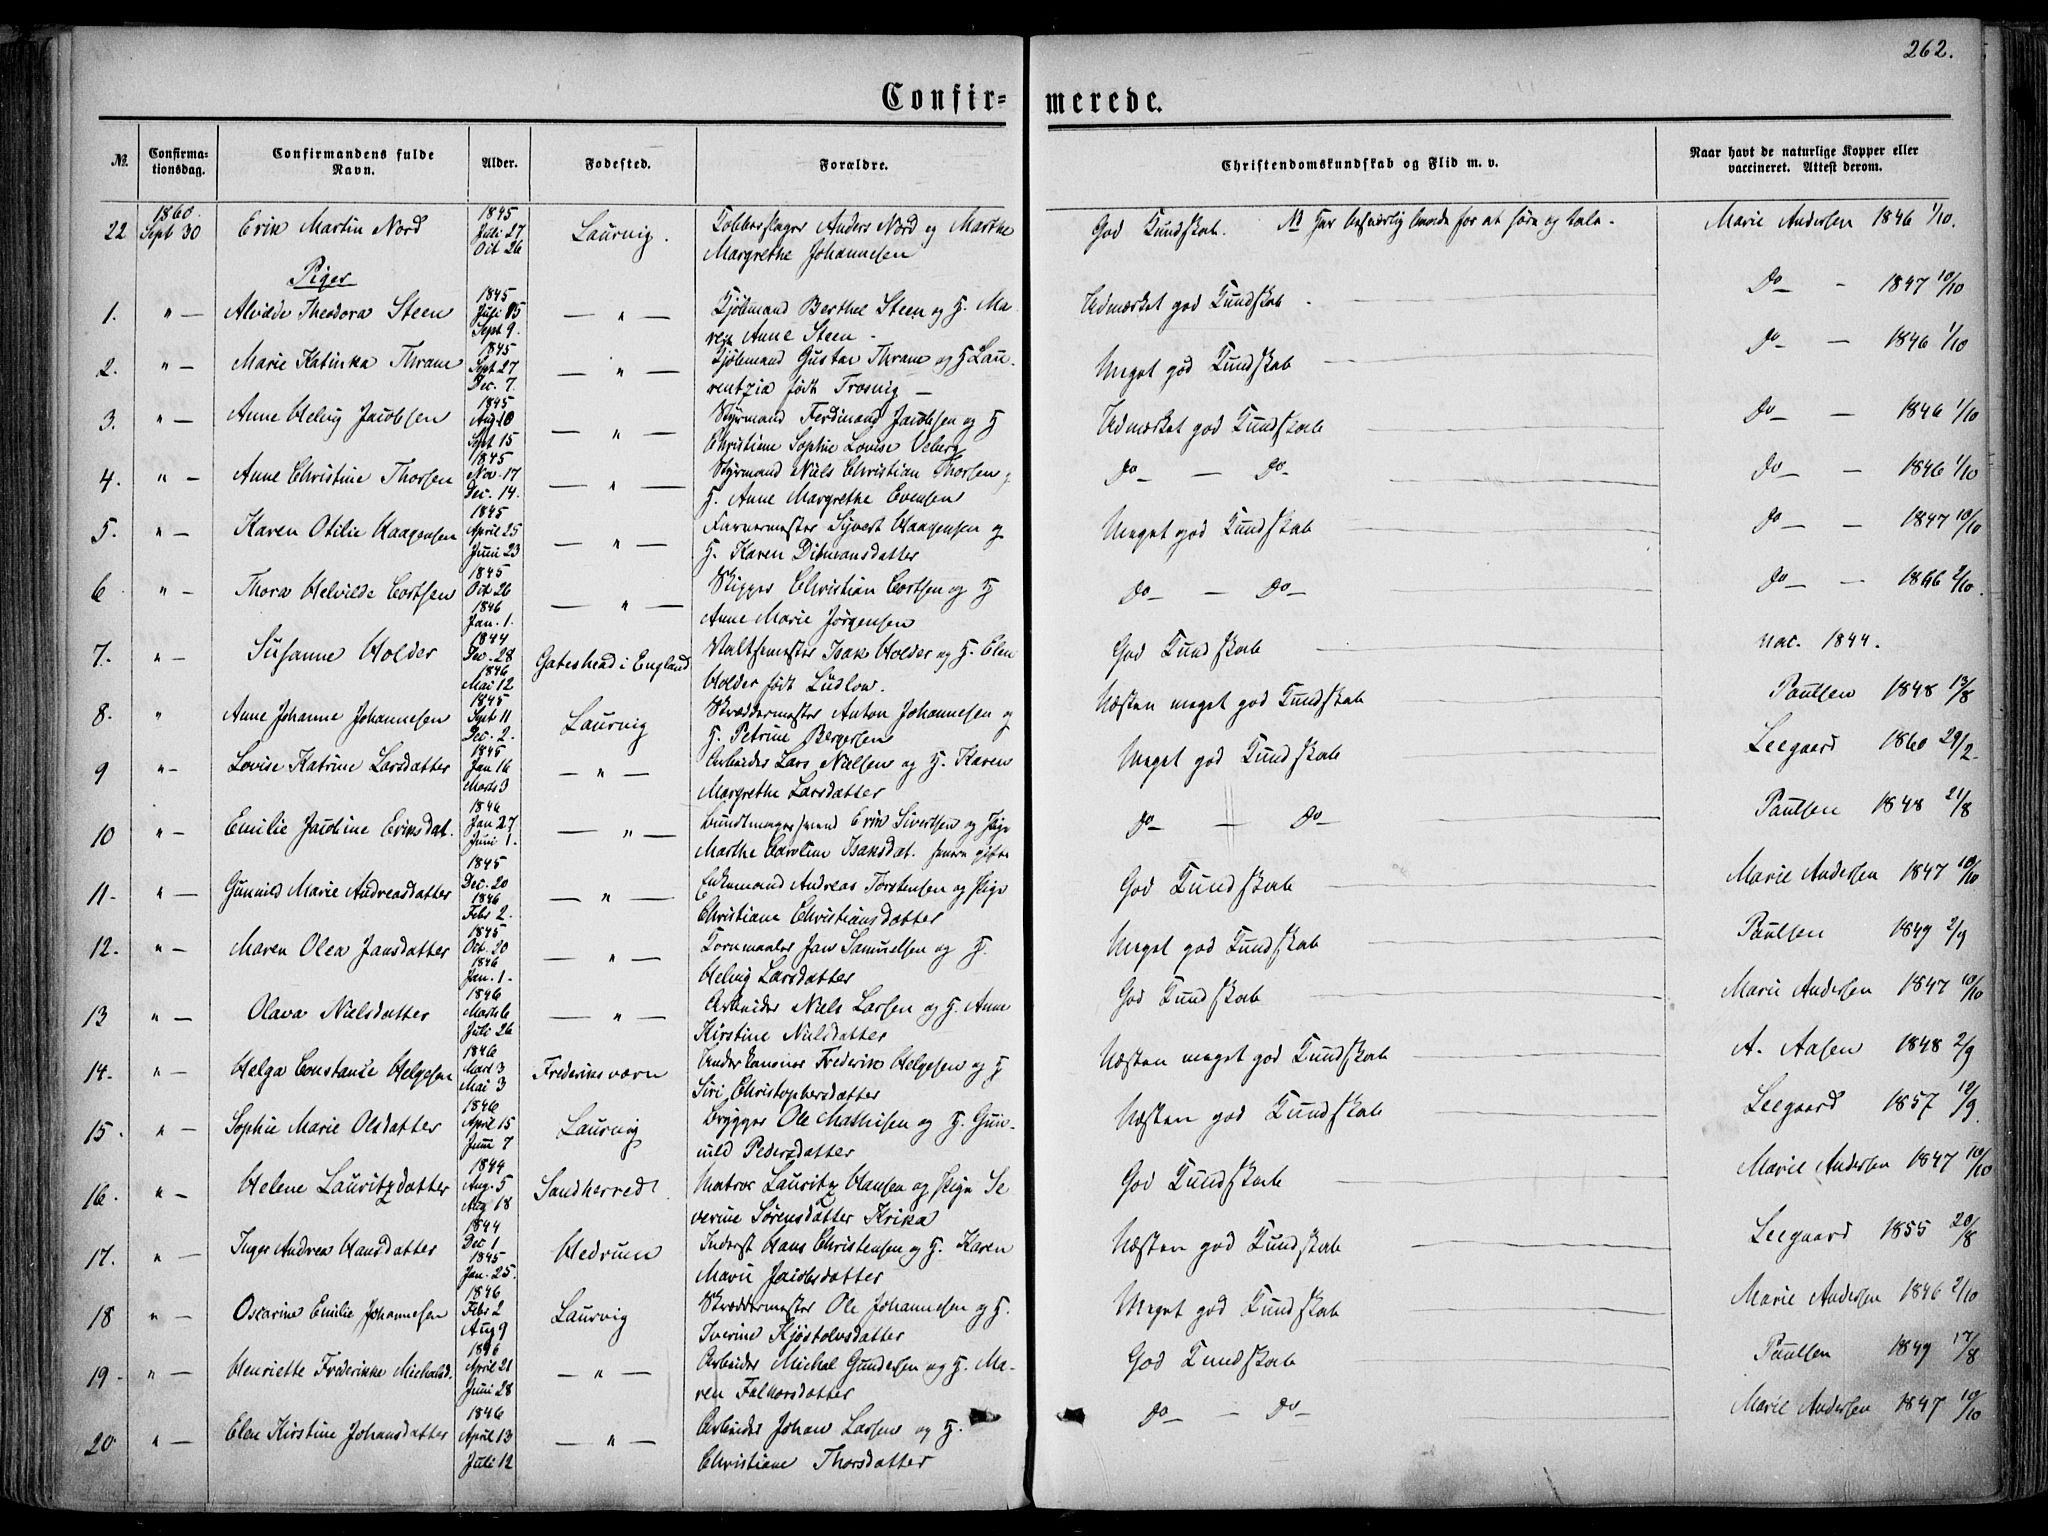 262.
Confir= merede.
No. Confirma-tionsdag. Confirmandens fulde Navn. Alder. Fødested. Forældre. Christendomskundskab og Flid m. v. Naar havt de naturlige Kopper eller vaccineret. Attest derom.
22 1860 Sept 30 Erik Martin Nord 1845 Juli 27 Oct 26 Laurvig. Kobberslager Anders Nord og Marthe God Kundskab. NB har besværlig for at høre og tale. Marie Andersen 1846 1/10.
Margrethe Johannesen
Piger
1. " — Alvilde Theodora Steen 1845 Juli 15 Sept 9. — " — Kjøbmand Berthel Steen og H. Ma- Udmærket god Kundskab. Do — 1847 10/10
ren Anne Steen —
2. " — Marie Katinka Thrane 1845 Sept 27 Dec. 7. — " — Kjøbmand Gustav Thrane og H Lau- Meget god Kundskab Do — 1846 1/10
rentzia født Trosvig —
3. " — Anne Helvig Jacobsen 1845 Aug 10 Sept 15 — " — Styrmand Ferdinand Jacobsen og H Udmærket god Kundskab Do — 1846 1/10
Christiane Sophie Lovise Veberg
4. " — Anne Christine Thorsen 1845 Nov. 17 Dec. 14. — " — Styrmand Niels Christian Thorsen og Do — Do — Do — 1846 1/10
H. Anne Margrethe Evensen
5. " — Karen Otilie Haagensen 1845 April 25 Juni 23 — " — Farvermester Syvert Haagensen og Meget god Kundskab Do — 1847 10/10
H. Karen Ditmansdatter
6 " — Thora Helvilde Cortsen 1845 Oct 26 1846 Jan. 1. — " — Skipper Christian Cortsen og H Do — Do — Do — 1846 2/10.
Anne Marie Jørgensen
7. " — Susanne Holder 1844 Dec. 28 1846 Mai 12 Gateshead i England Valtsemester Isak Holder og H. Elen God Kundskab vac. 1844.
Holder født Ludlow.
8. " Anne Johanne Johannesen 1845 Sept 11 Dec. 2. Laurvig Skræddermester Anton Johannesen og Næsten meget god Kundskab Paulsen 1848 13/8
H. Petrine Bergersen
9 " — Lovise Katrine Larsdatter 1845 Jan 16 Marts 3 — " — Arbeider Lars Nielsen og H. Karen Meget god Kundskab Leegaard 1860 29/2.
Margrethe Larsdatter
10 " — Emilie Jacobine Eriksdat. 1846 Jan 27 Juni 1. — " — Bundtmagersvend Erik Sivertsen og Pige Do — Do — Paulsen 1848 21/8
Marthe Caroline Isaksdat. senere gifte
11. " — Gunnild Marie Andreasdatter 1845 Dec. 20 1846 Febr 2. — " — Enkemand Andreas Torstensen og Pige God Kundskab Marie Andersen 1847 10/10
Christiane Christiansdatter
12. " — Maren Olea Jansdatter 1845 Oct. 20 1846 Jan. 1. — " — Kornmaaler Jans Samuelsen og H. Meget god Kundskab Paulsen 1849 2/9
Helvig Larsdatter
13 " — Olava Nielsdatter 1846 Marts 6 Juli 26 — " — Arbeider Niels Larsen og H. Anne God Kundskab Marie Andersen 1847 10/10
Kirstine Nielsdatter
14. " — Helga Constance Helgesen 1846 Mart 3 Mai 3 Frederiksværn Underkanoner Frederik Helgesen og H Næsten meget god Kundskab A. Aasen 1848 2/9
Siri Christophersdatter
15. " — Sophie Marie Olsdatter 1846 April 15 Juni 7 Laurvig Brygger Ole Mathisen og H. Gun- Næsten god Kundskab Leegaard 1857 19/9.
nild Pedersdatter
16. " — Helene Lauritzdatter 1844 Aug. 5 Aug 18 Sandherred Matros Lauritz Hansen og Pige Se God Kundskab Marie Andersen 1847 10/10
verine Sørensdatter Krika
17. " — Inger Andrea Hansdatter 1844 Dec 1. 1845 Jan. 25. Hedrum Inderst Hans Christensen og H. Karen Næsten god Kundskab Leegaard 1855 20/8
Marie Jacobsdatter
18 " — Oscarine Emilie Johannesen 1846 Febr 2 Aug 9 Laurvig Skræddermester Ole Johannesen og H. Meget god Kundskab Marie Andersen 1846 2/10
Iverine Kjøstolvsdatter
19. " — Henriette Frederikke Michalsd. 1846 April 21 Juni 28 — " — Arbeider Michal Gundersen og H. Ma- God Kundskab Paulsen 1849 17/8
ren Falkorsdatter
20 " — Elen Kirstine Johansdatter 1846 April 13 Juli 12 — " — Arbeider Johan Larsen og H. Do — Do — Marie Andersen 1847 10/10
Christiane Thorsdatter